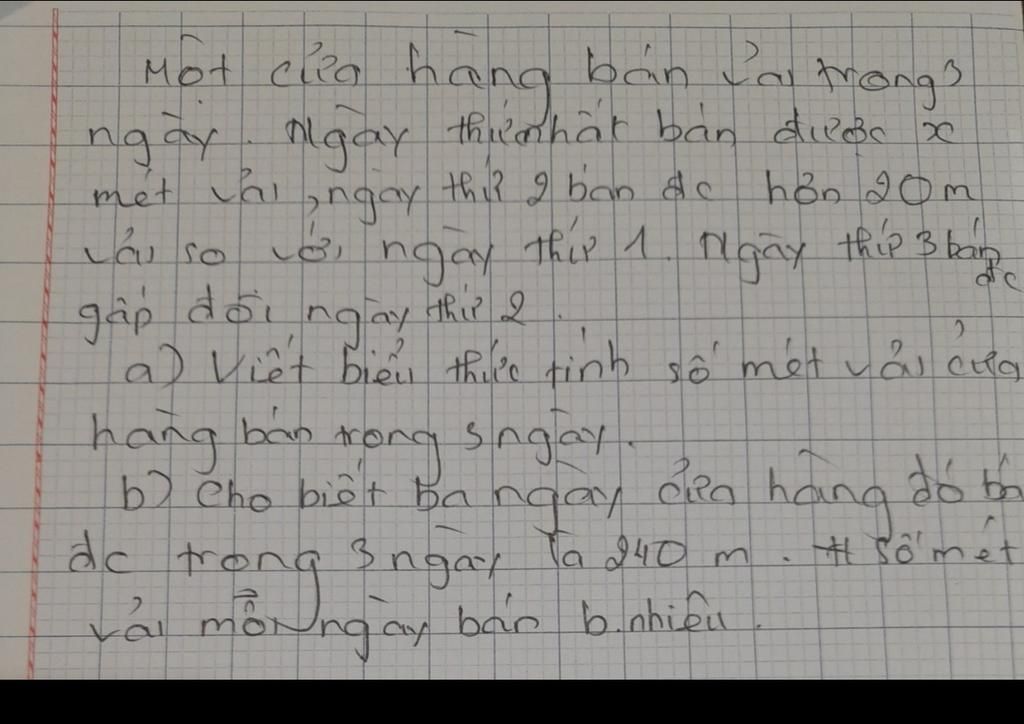 Một cửa hàng bán vải trong 3
ngày. Ngày thứ nhất bán được x
mét vải, ngày thứ 2 bán đc hơn 20m
vải so với ngày thứ 1. Ngày thứ 3 bán
đc
gấp đôi ngày thứ 2.
a) Viết biểu thức tính số mét vải cửa
hàng bán trong 3 ngày.
b) Cho biết ba ngày cửa hàng đó bá
đc trong 3 ngày là 240 m. số mét
vải mỗi ngày bán b.nhiêu.